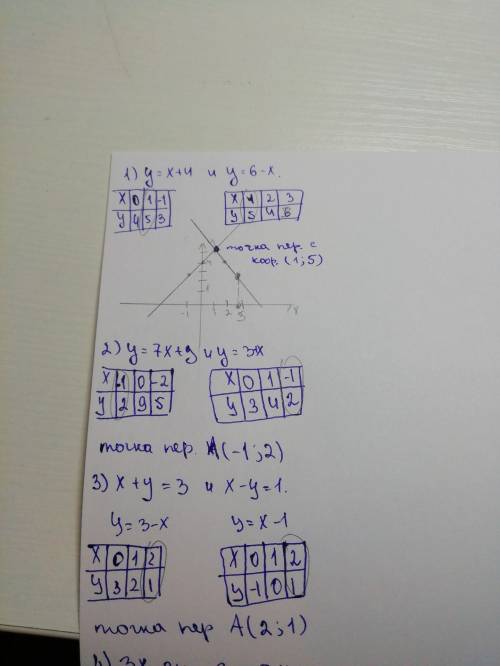 1) y = x+4 и y = 6-x.
x 0 1 -1
y 4 5 3
x 1 2 3
y 5 4
точка пер. с
коор. (1; 5)
1
-1 1 2 3 x
2) y = 7x+9 и y =
x -1 0 -2
y 2 9 5
x 0 1 -1
y 3 4 2
точка пер. A(-1; 2)
3) x + y = 3 и x - y = 1.
y = 3-x y = x-1
x 0 1 2
y 3 2 1
x 0 1 2
y -1 0 1
точка пер A(2; 1)